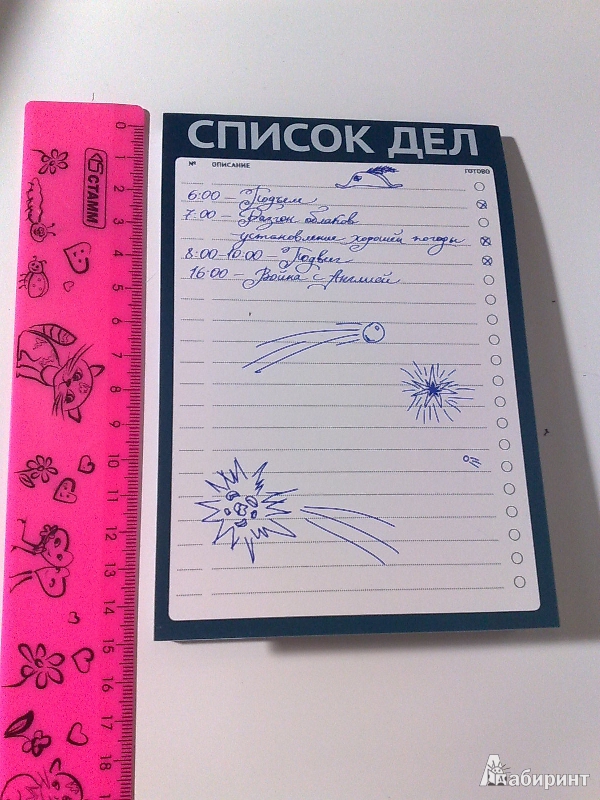 СПИСОК ДЕЛ
№ ОПИСАНИЕ ГОТОВО
6:00 – Подъем
7:00 – Разгон облаков
установление хорошей погоды
8:00-10:00 – Подвиг
16:00 – Война с Англией
СТАММ
0
1
2
3
4
5
6
7
8
9
10
11
12
13
14
15
16
17
18
Лабиринт